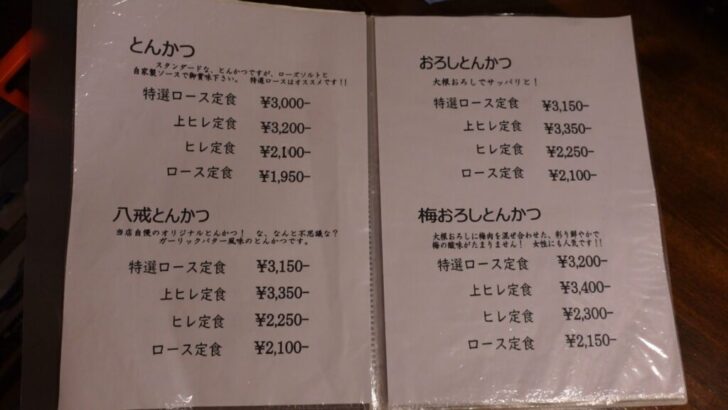 とんかつ
スタンダードな、とんかつですが、ローズソルトと
自家製ソースで御賞味下さい。 特選ロースはオススメです!!
特選ロース定食 ¥3,000-
上ヒレ定食 ¥3,200-
ヒレ定食 ¥2,100-
ロース定食 ¥1,950-
八戒とんかつ
当店自慢のオリジナルとんかつ! な、なんと不思議な?
ガーリックバター風味のとんかつです。
特選ロース定食 ¥3,150-
上ヒレ定食 ¥3,350-
ヒレ定食 ¥2,250-
ロース定食 ¥2,100-
おろしとんかつ
大根おろしでサッパリと!
特選ロース定食 ¥3,150-
上ヒレ定食 ¥3,350-
ヒレ定食 ¥2,250-
ロース定食 ¥2,100-
梅おろしとんかつ
大根おろしに梅肉を混ぜ合わせた、彩り鮮やかで
梅の酸味がたまりません! 女性にも人気です!!
特選ロース定食 ¥3,200-
上ヒレ定食 ¥3,400-
ヒレ定食 ¥2,300-
ロース定食 ¥2,150-